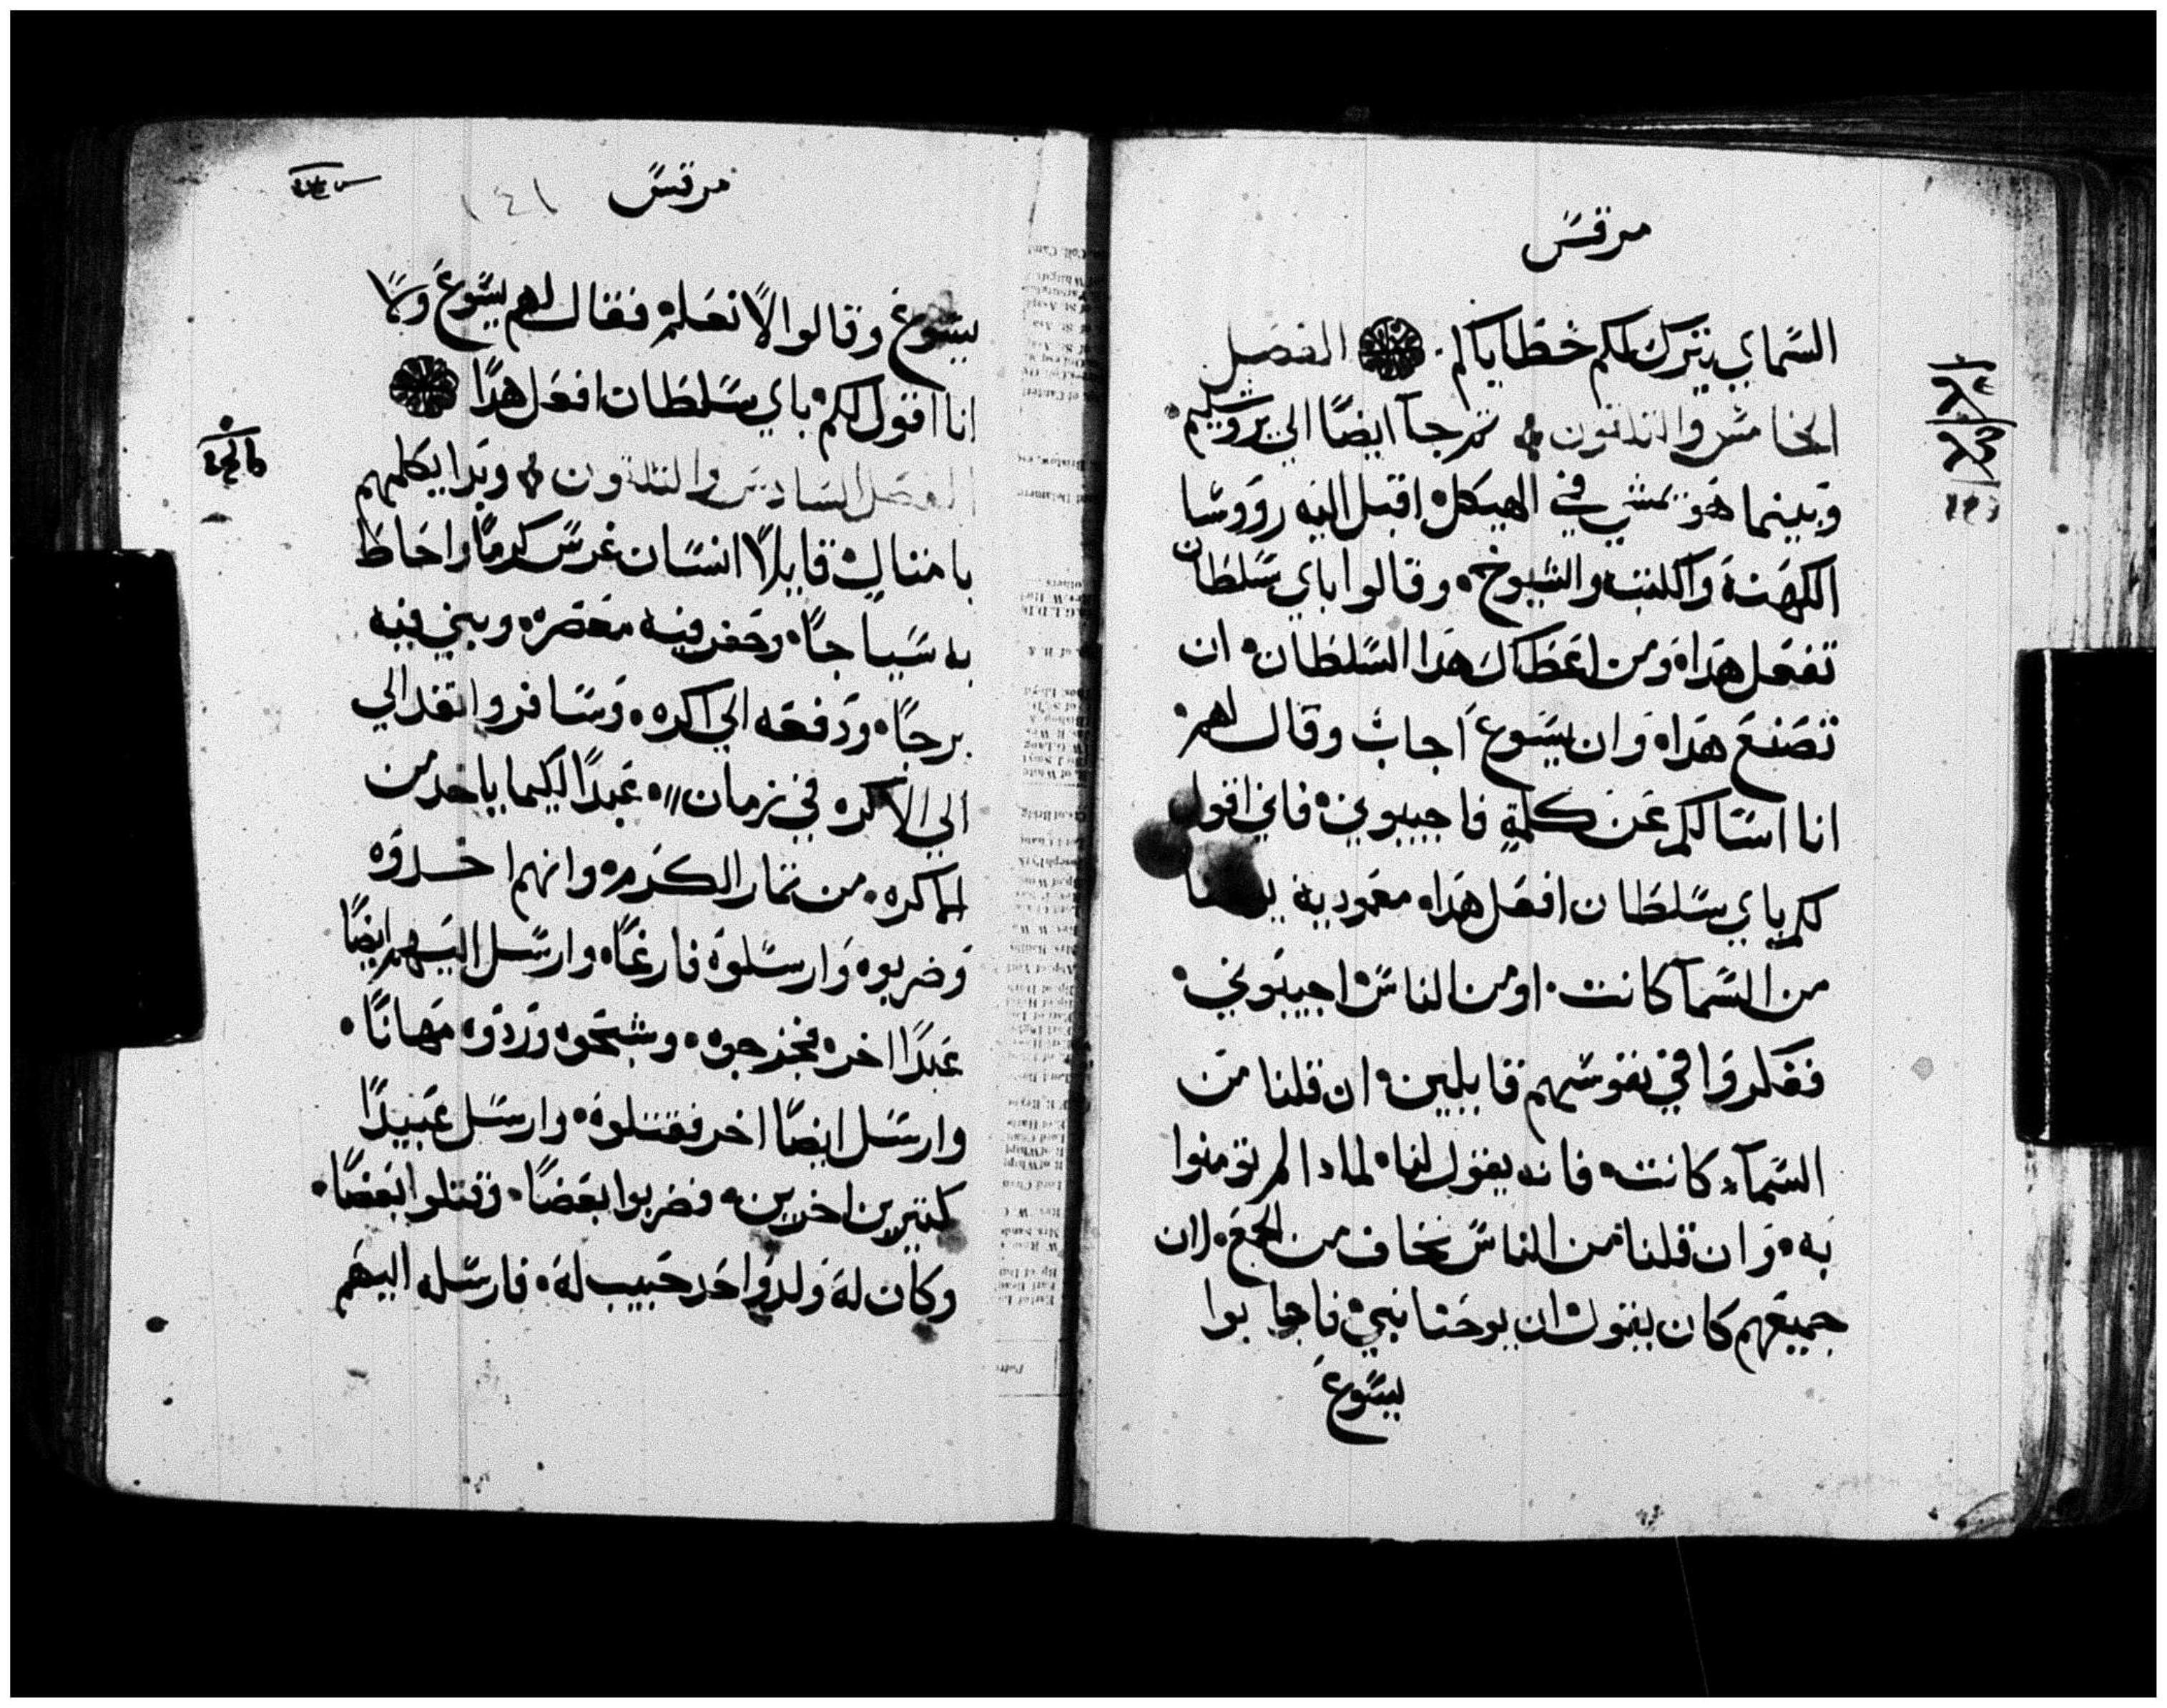 مرقس
السماي يترك لكم خطاياكم. الفصل
الخامس والثلثون تم جآ ايضًا الي يروشليم
وبينما هو يمشي في الهيكل اقبل اليه رووسا
الكهنة والكتبة والشيوخ وقالوا باي سلطان
تفعل هذا ومن اعطاك هذا السلطان ان
تصنع هذا وان يسوع اجاب وقال لهم
انا اسالكم عن كلمة فاجيبوني فاني اقول
لكم باي سلطان افعل هذا معمودية
من السمآ كانت. او من الناس اجيبوني
ففكروا في نفوسهم قايلين ان قلنا من
السمآء كانت فانه يقول لنا لماذا لم تومنوا
به وان قلنا من الناس نخاف من الجمع لان
جميعهم كان يقول ان يوحنا نبي فاجابوا
يسوع
مرقس
١٤١
يسوع وقالوا لا نعلم فقال لهم يسوع ولا
انا اقول لكم باي سلطان افعل هذا
الفصل السادس والثلثون وبدا يكلمهم
بامثال قايلاً انسان غرس كرمًا واحاط
به سياجًا وحفر فيه معصره وبني فيه
برجًا ودفعه الي اكره وسافر وانفد الي
الي الاكره في زمان عبدًا لكيما ياخد من
الاكره من ثمار الكرم وانهم اخدوه
وضربوه وارسلوه فارغًا وارسل اليهم ايضًا
عبدًا اخر فجرحوه وشبحوه وردوه مهانًا
وارسل ايضًا اخر فقتلوه وارسل عبيدًا
كتيرين اخرين فضربوا بعضًا وقتلوا بعضًا
وكان له ولد واحد حبيب له فارسله اليهم